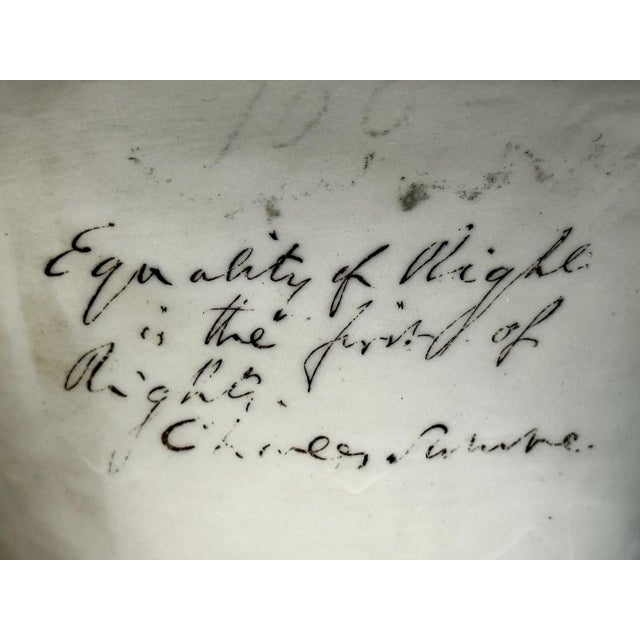 Equality of Right
is the first of
Rights.
Charles Sumner.